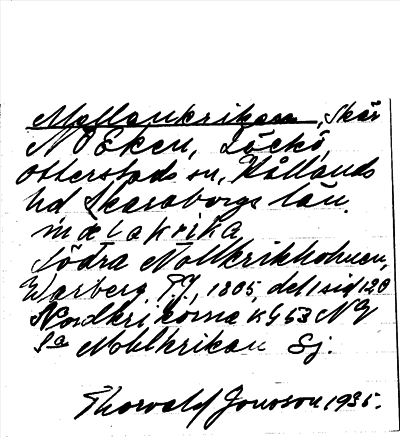 Mellankrikan, Skär
N Eken, Läckö,
Otterstads sn, Kållands
hd Skaraborgs län.
mælakrika
Södra Nollkrikholmen,
Warberg, TJ, 1805, del 1 sid 120
Nordkrikorna KG 53 NV
Sa Mohlkrikan Sj.
Thorvald Jonsson 1935.